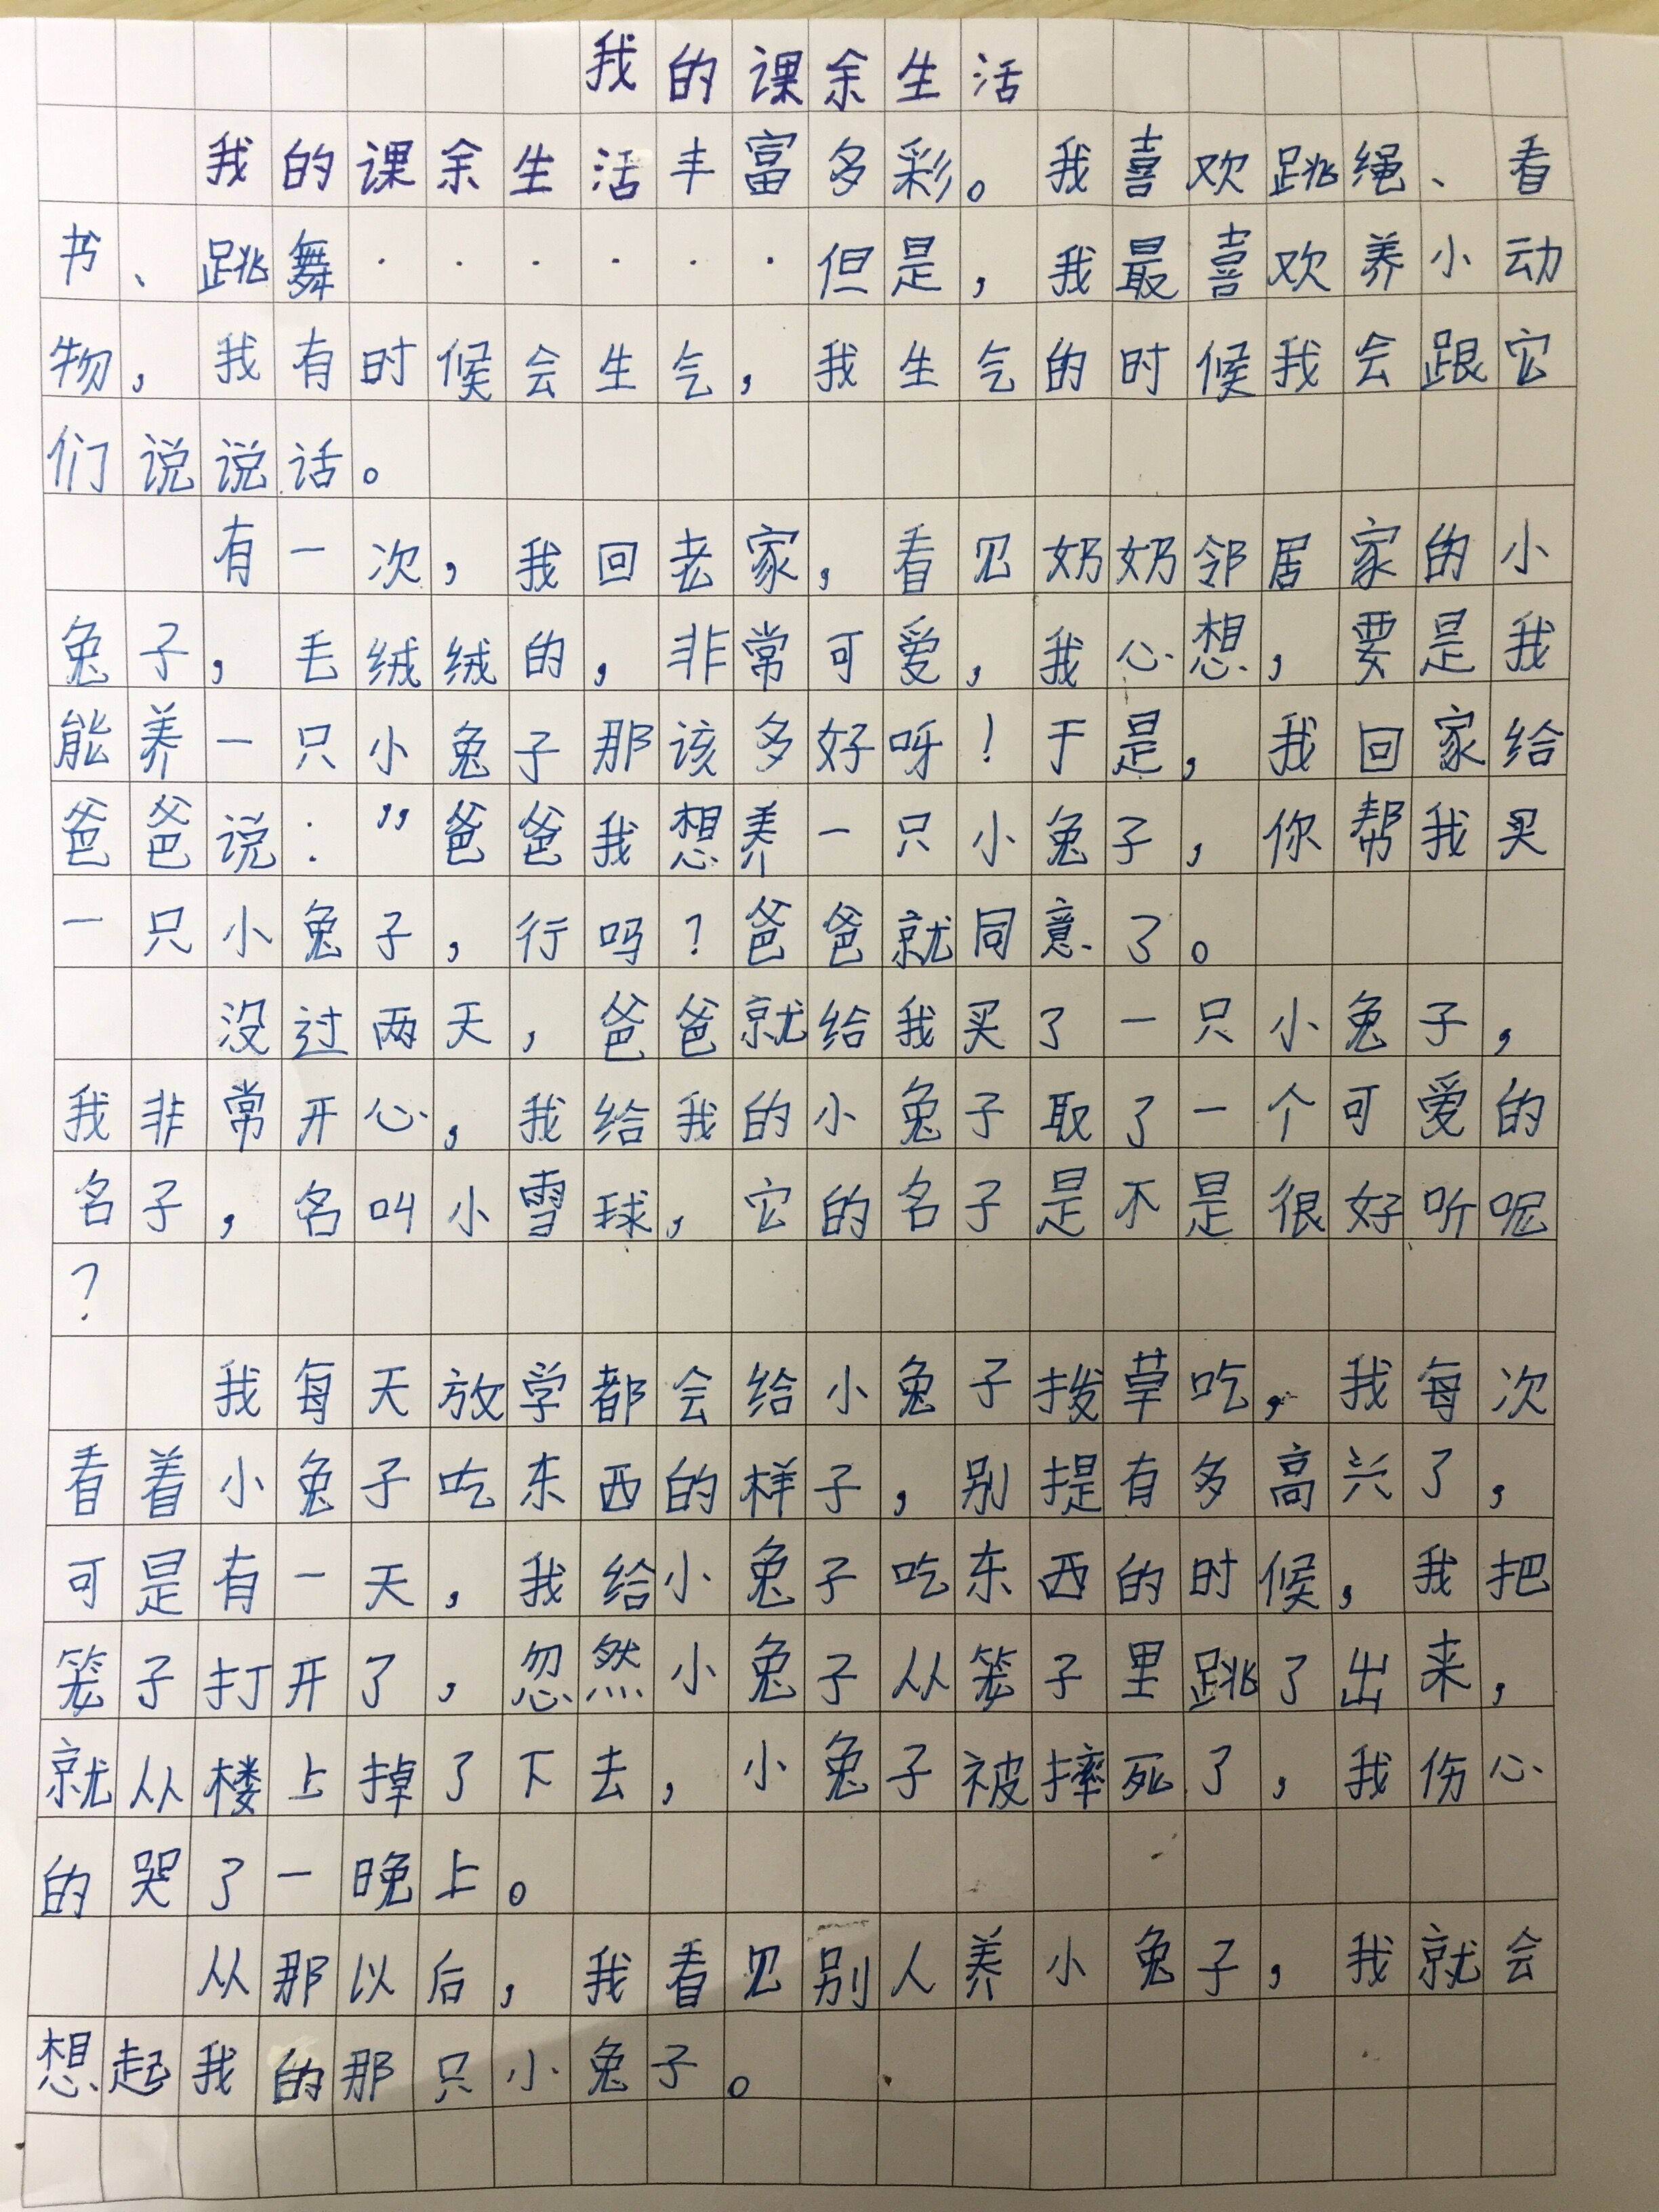 我的课余生活
我的课余生活丰富多彩。我喜欢跳绳、看
书、跳舞······但是，我最喜欢养小动
物，我有时候会生气，我生气的时候我会跟它
们说说话。
有一次，我回老家，看见奶奶邻居家的小
兔子，毛绒绒的，非常可爱，我心想，要是我
能养一只小兔子那该多好呀！于是，我回家给
爸爸说：”爸爸我想养一只小兔子，你帮我买
一只小兔子，行吗？爸爸就同意了。
没过两天，爸爸就给我买了一只小兔子，
我非常开心，我给我的小兔子取了一个可爱的
名子，名叫小雪球，它的名子是不是很好听呢
？
我每天放学都会给小兔子拨草吃，我每次
看着小兔子吃东西的样子，别提有多高兴了，
可是有一天，我给小兔子吃东西的时候，我把
笼子打开了，忽然小兔子从笼子里跳了出来，
就从楼上掉了下去，小兔子被摔死了，我伤心
的哭了一晚上。
从那以后，我看见别人养小兔子，我就会
想起我的那只小兔子。